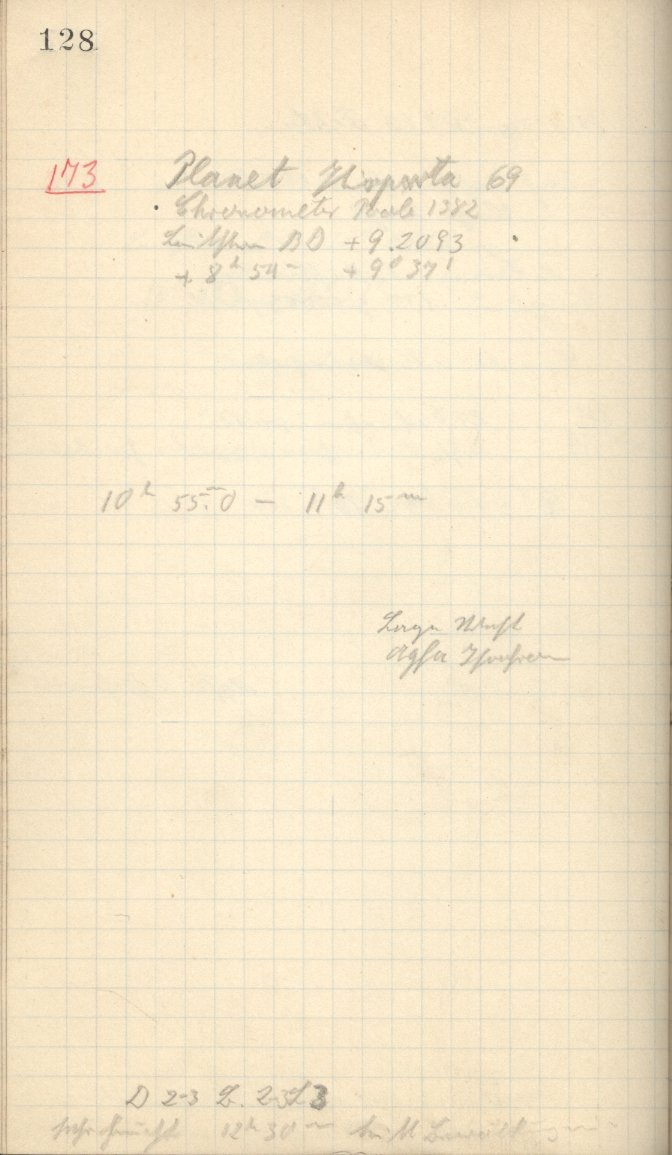 128
173 Planet Hesperia 69
Chronometer Nobl. 1382
Leitstern BD +9.2093
+ 8ʰ 54ᵐ + 9° 37'
10ʰ 55ᵐ.0 – 11ʰ 15ᵐ
Lage West
Agfa Isochrom
D 2-3 L. 2-3 3
sehr feucht 12ʰ 30ᵐ